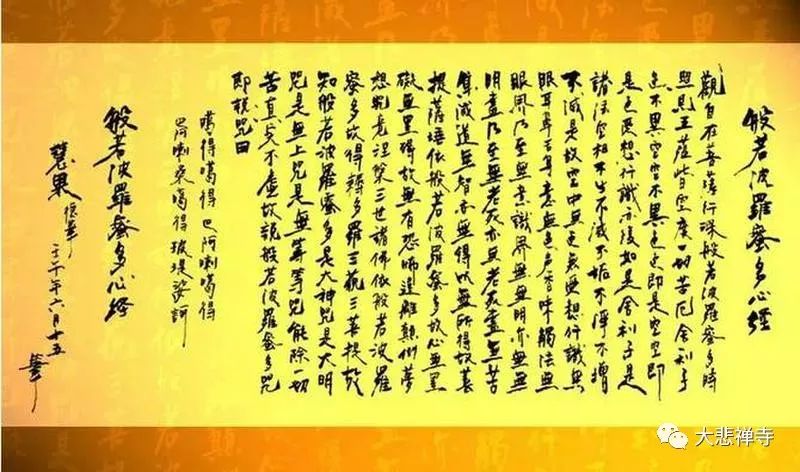 般若波羅蜜多心經
觀自在菩薩行深般若波羅蜜多時
照見五蘊皆空度一切苦厄舍利子
色不異空空不異色色即是空空即
是色受想行識亦復如是舍利子是
諸法空相不生不滅不垢不淨不增
不減是故空中無色無受想行識無
眼耳鼻舌身意無色声香味觸法無
眼界乃至無意識界無無明亦無無
明盡乃至無老死亦無老死盡無苦
集滅道無智亦無得以無所得故菩
提薩埵依般若波羅蜜多故心無罣
礙無罣碍故無有恐怖遠離顛倒夢
想究竟涅槃三世諸佛依般若波羅
蜜多故得耨多羅三藐三菩提故
知般若波羅蜜多是大神咒是大明
咒是無上咒是無等等咒能除一切
苦真實不虛故說般若波羅蜜多咒
即說咒曰
噶得噶得巴阿喇噶得
巴阿喇桑噶得玻堤娑訶
般若波羅蜜多心经
慧果
壬午年六月十五
大悲禅寺